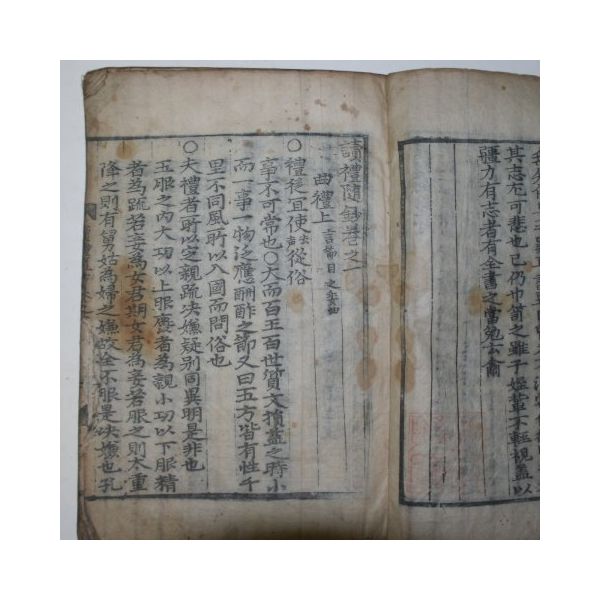 其志尤可悲也已仍弁首之雖子姪輩不輕視盖以
疆力有志者有全書之當兔云肅
讀禮隨鈔卷之一
曲禮上
○禮從宜使去聲從俗
事不可常也○大而百王百世質文損益之時小
而一事一物泛應酬酢之節又曰五方皆有性千
里不同風所以入國而問俗也
○夫禮者所以定親疏决嫌疑别同異明是非也
五服之內大功以上服麁者為親小功以下服精
者為疏若妾為女君期女君為妾若服之則太重
降之則有舅姑為婦之嫌故全不服是决嫌也孔